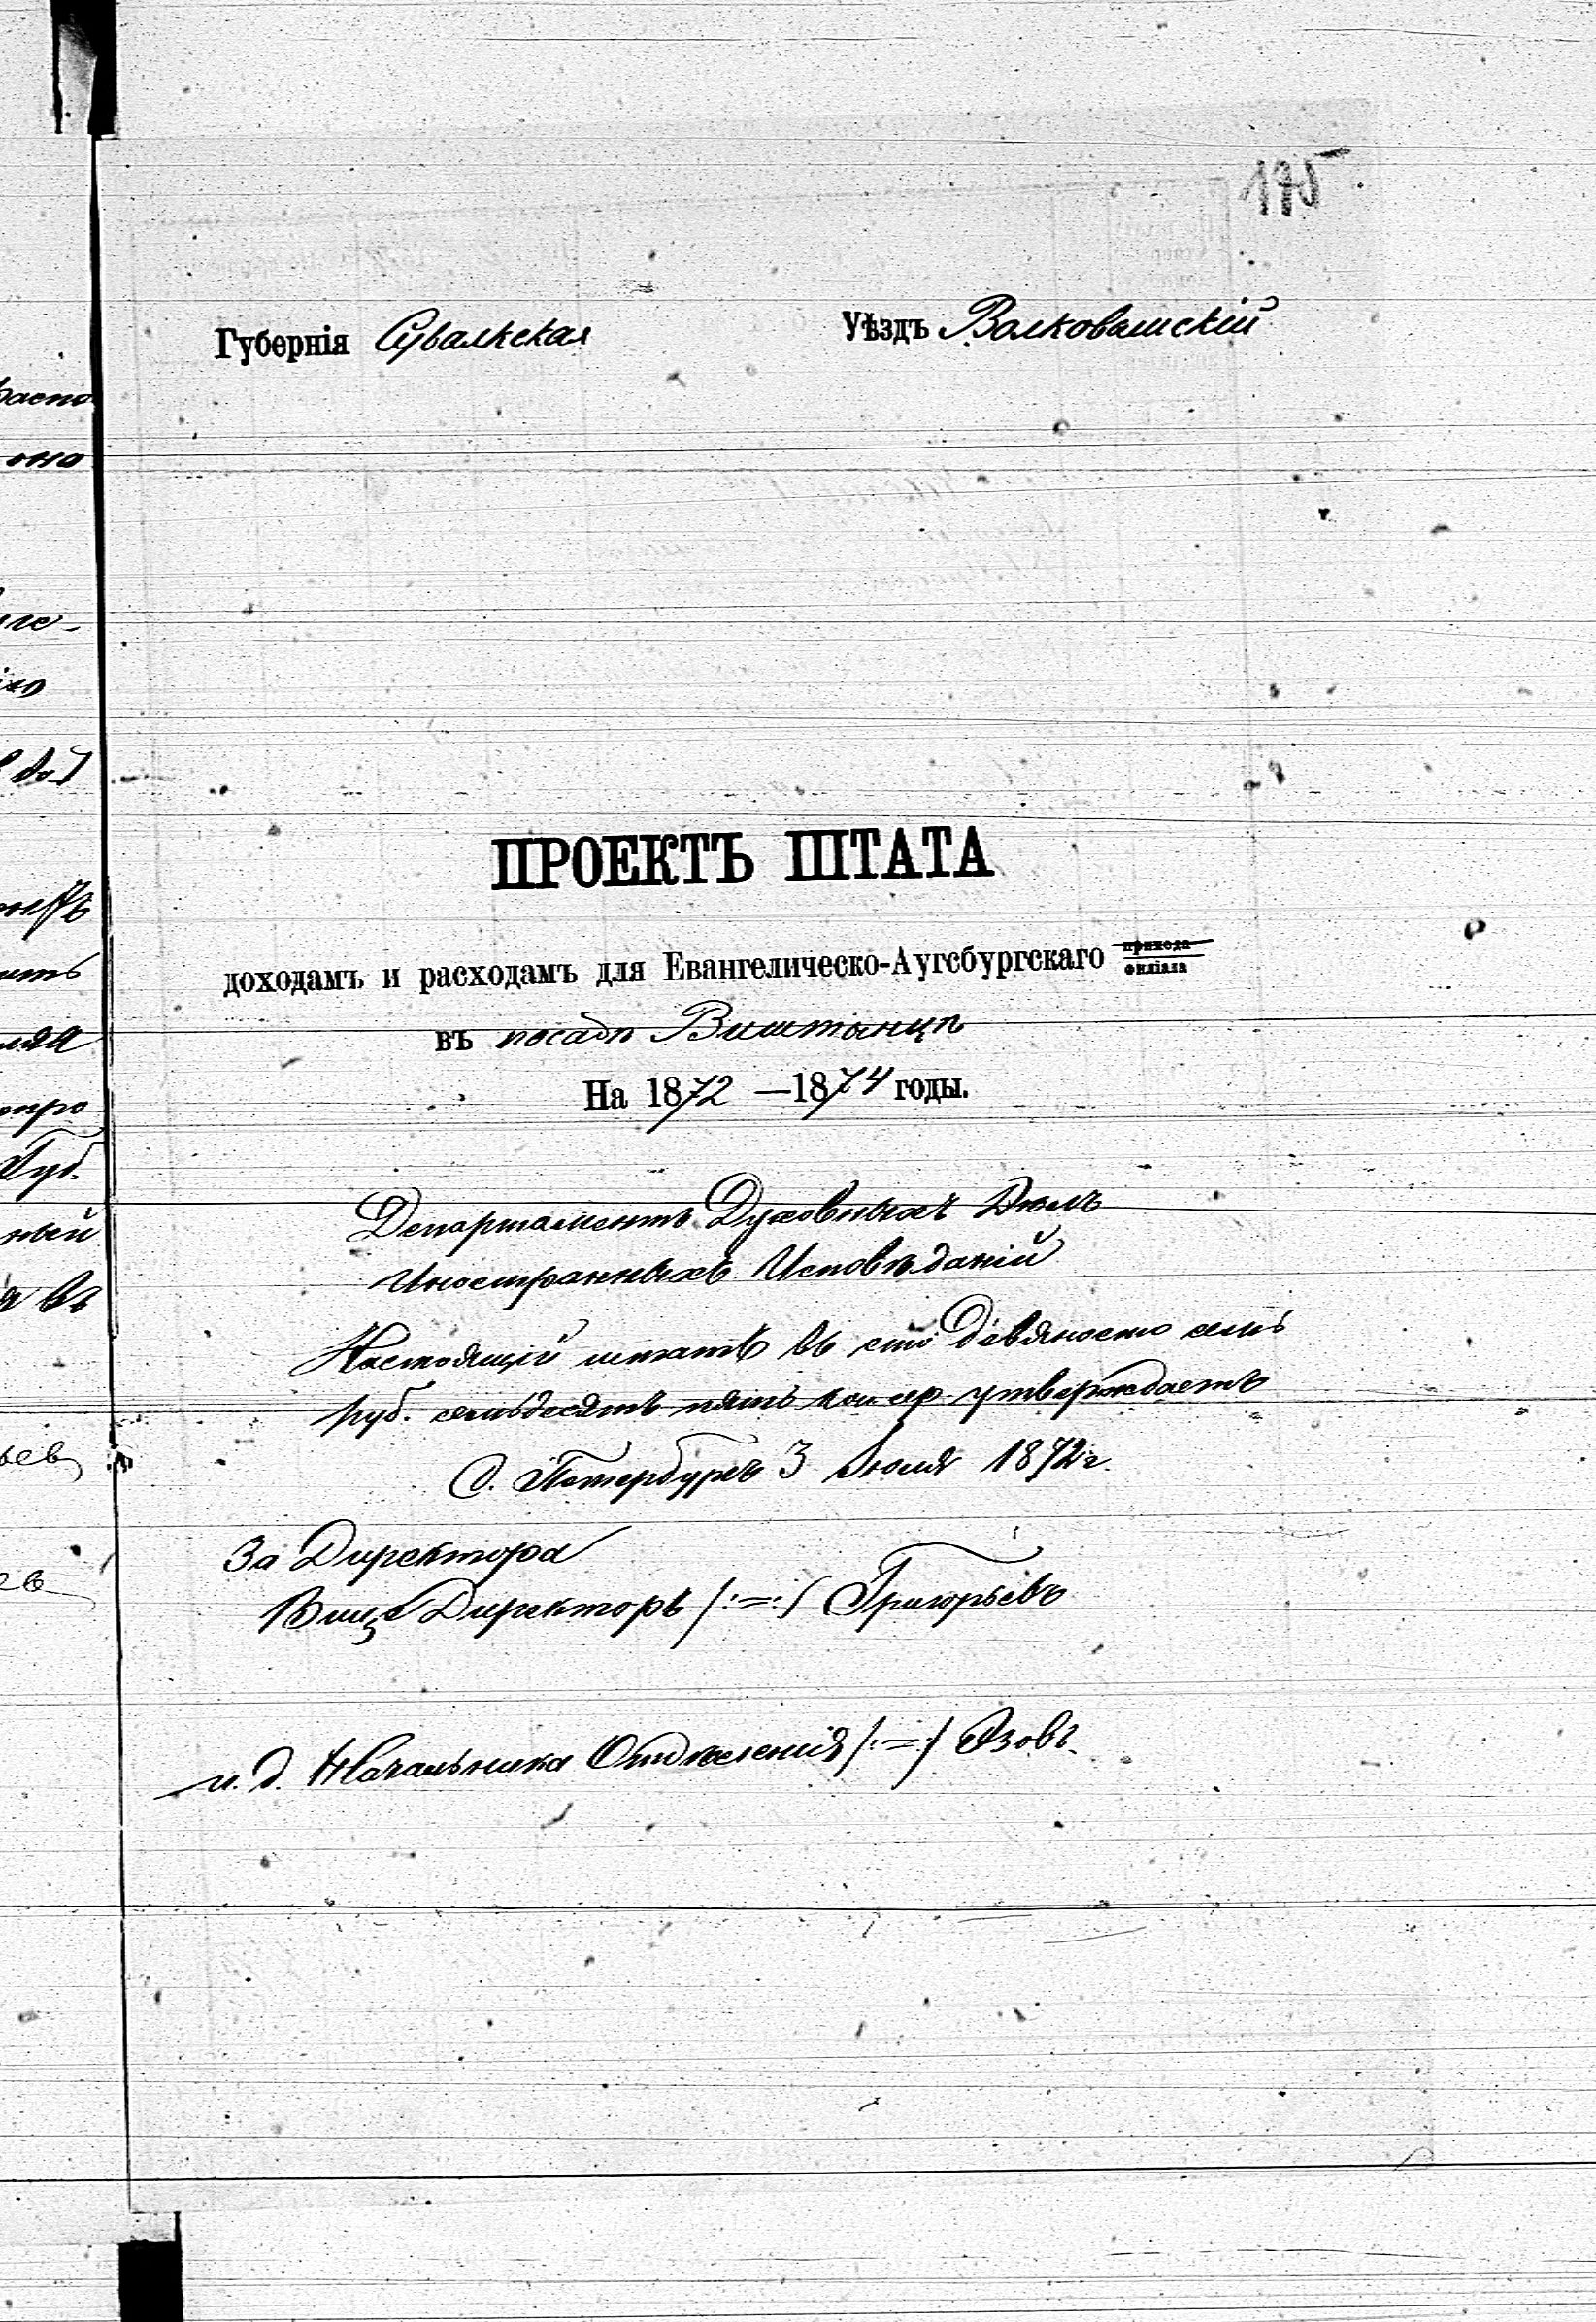 175
Губернія Сувалкская Уѣздъ Волковышскій
ПРОЕКТЪ ШТАТА
доходамъ и расходамъ для Евангелическо-Аугсбургскаго прихода
филіала
въ посадѣ Виштынцѣ
На 1872 —1874 годы.
Департаментъ Духовныхъ Дѣлъ
Иностранныхъ Исповѣданій
Настоящій штатъ въ сто девяносто семь
руб. семьдесятъ пять коп. сер. утверждаетъ
С. Петербургъ 3 Іюля 1872 г.
За Директора
Вице Директоръ /:=:/ Григорьевъ
и. д. Начальника Отдѣленія /:=:/